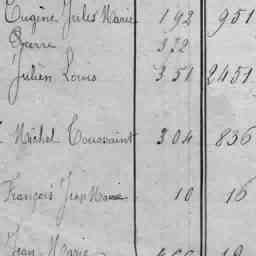 Eugène Jules Marie 192 951
Pierre 322
Julien Louis 351 2451
Michel Toussaint 304 836
François Jean Marie 10 16
Jean Marie